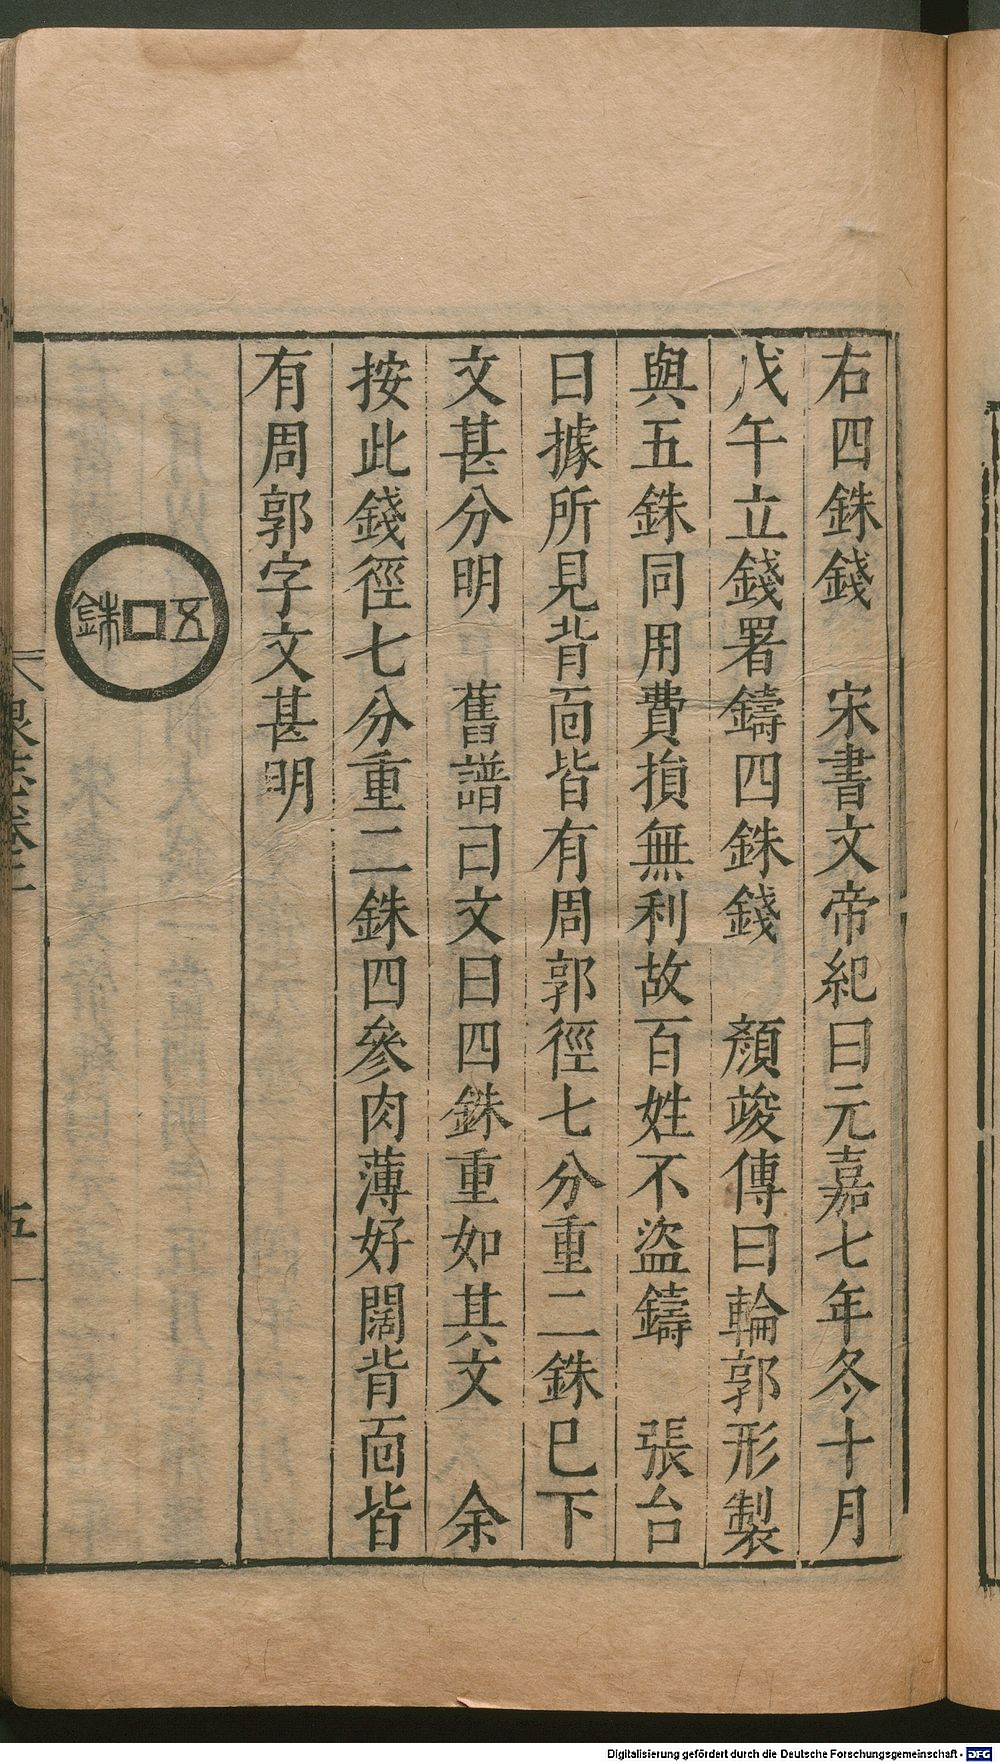 右四銖錢　宋書文帝紀曰元嘉七年冬十月
戊午立錢署鑄四銖錢　顏竣傳曰輪郭形製
與五銖同用費損無利故百姓不盜鑄　張台
曰據所見背靣皆有周郭徑七分重二銖已下
文甚分明　舊譜曰文曰四銖重如其文　余
按此錢徑七分重二銖四參肉薄好闊背靣皆
有周郭字文甚明
五銖
泉志卷二
五
Digitalisierung gefördert durch die Deutsche Forschungsgemeinschaft - DFG